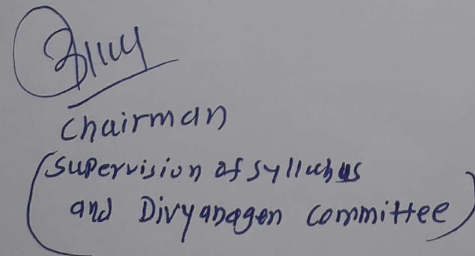 chairman
(supervision of syllabus
and Divyanagen committee)